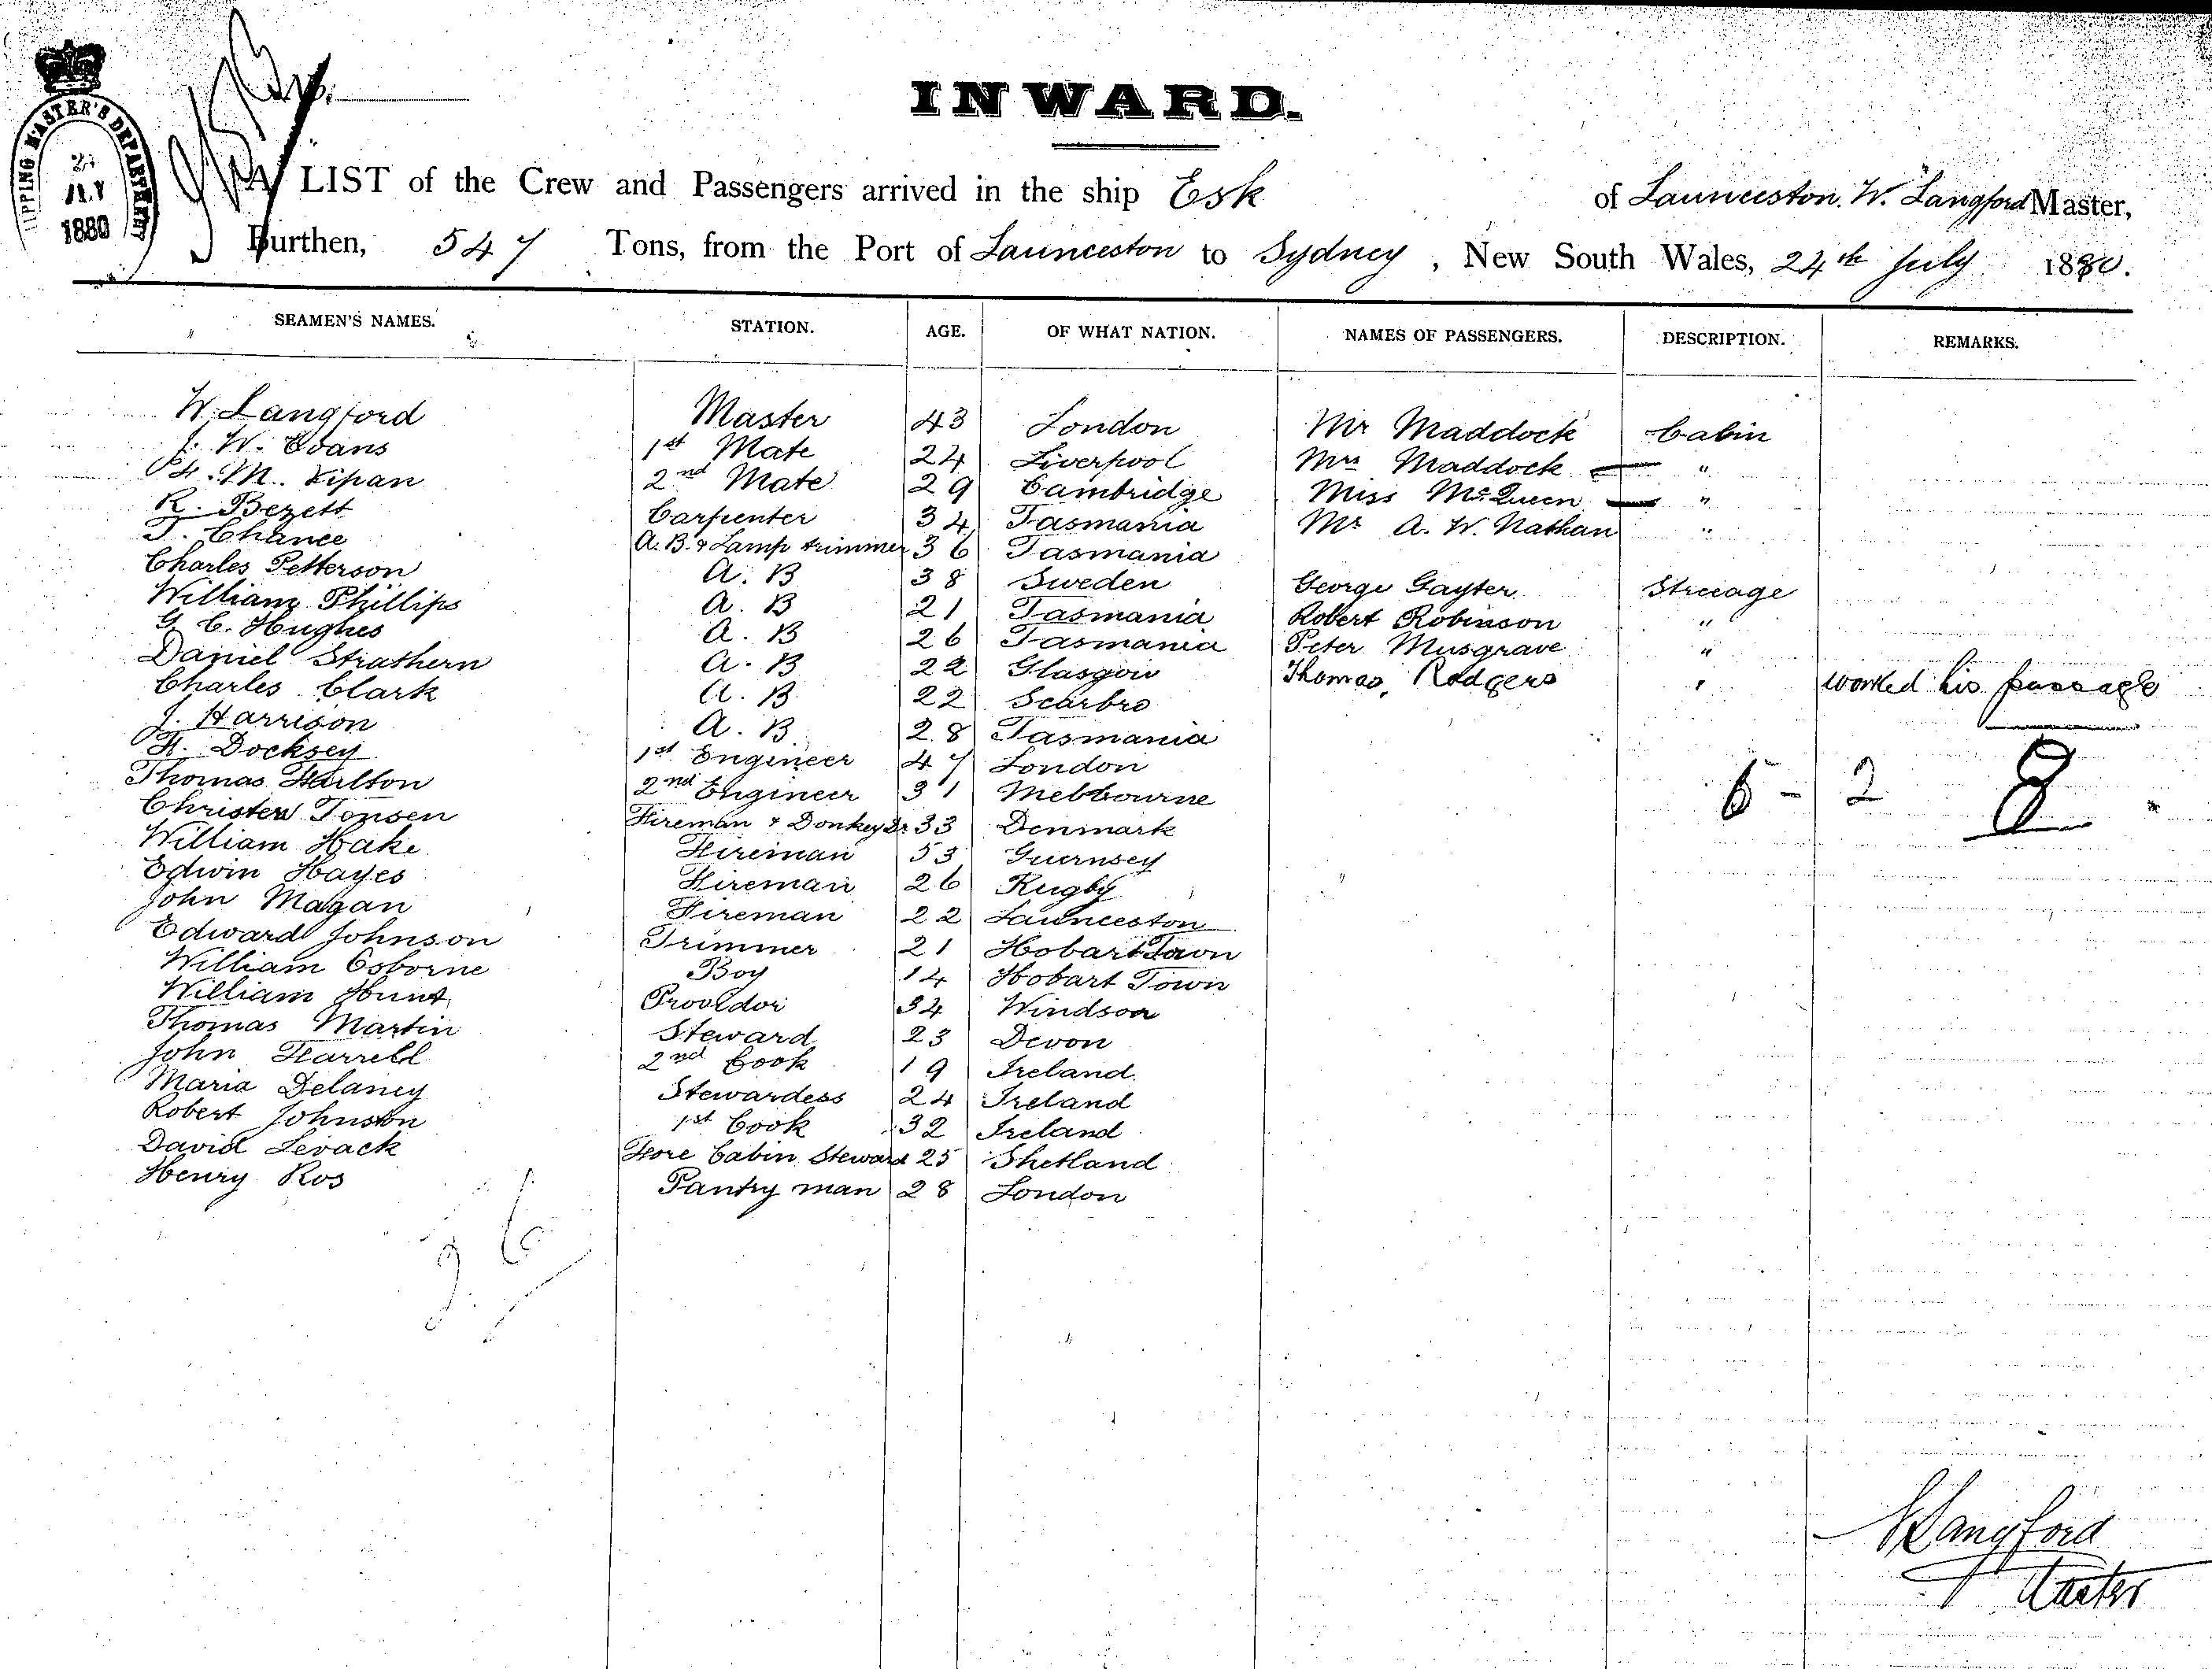 INWARD.
SHIPPING MASTER'S DEPARTMENT
1880
A LIST of the Crew and Passengers arrived in the ship Esk of Launceston. W. Langford Master,
Burthen, 547 Tons, from the Port of Launceston to Sydney, New South Wales, 24th July 1880.
SEAMEN'S NAMES. STATION. AGE. OF WHAT NATION. NAMES OF PASSENGERS. DESCRIPTION. REMARKS.
W. Langford Master 43 London Mr Maddock Cabin
J. W. Evans 1st Mate 24 Liverpool Mrs Maddock "
M. Kipan 2nd Mate 29 Cambridge Miss McQueen "
R. Bezett Carpenter 34 Tasmania Mr A. W. Nathan "
T. Chance A. B. & Lamp trimmer 36 Tasmania
Charles Petterson A. B 38 Sweden George Gayter Streeage
William Phillips A. B 21 Tasmania Robert Robinson "
G. C. Hughes A. B 26 Tasmania Peter Musgrave "
Daniel Strathern A. B 22 Glasgow Thomas Rodgers " worked his passage
Charles Clark A. B 22 Scarbro
J. Harrison A. B. 28 Tasmania
H. Docksey 1st Engineer 47 London 6 - 2 8
Thomas Hailton 2nd Engineer 31 Melbourne
Christen Tonsen Fireman & Donkey Dr 33 Denmark
William Hake Fireman 53 Guernsey
Edwin Hayes Fireman 26 Rugby
John Magan Fireman 22 Launceston
Edward Johnson Trimmer 21 Hobart Town
William Osborne Boy 14 Hobart Town
William Hunt Providor 34 Windsor
Thomas Martin Steward 23 Devon
John Farrell 2nd Cook 19 Ireland
Maria Delaney Stewardess 24 Ireland
Robert Johnston 1st Cook 32 Ireland
David Levack Fore Cabin Steward 25 Shetland
Henry Ros Pantry man 28 London
26
W Langford
Master